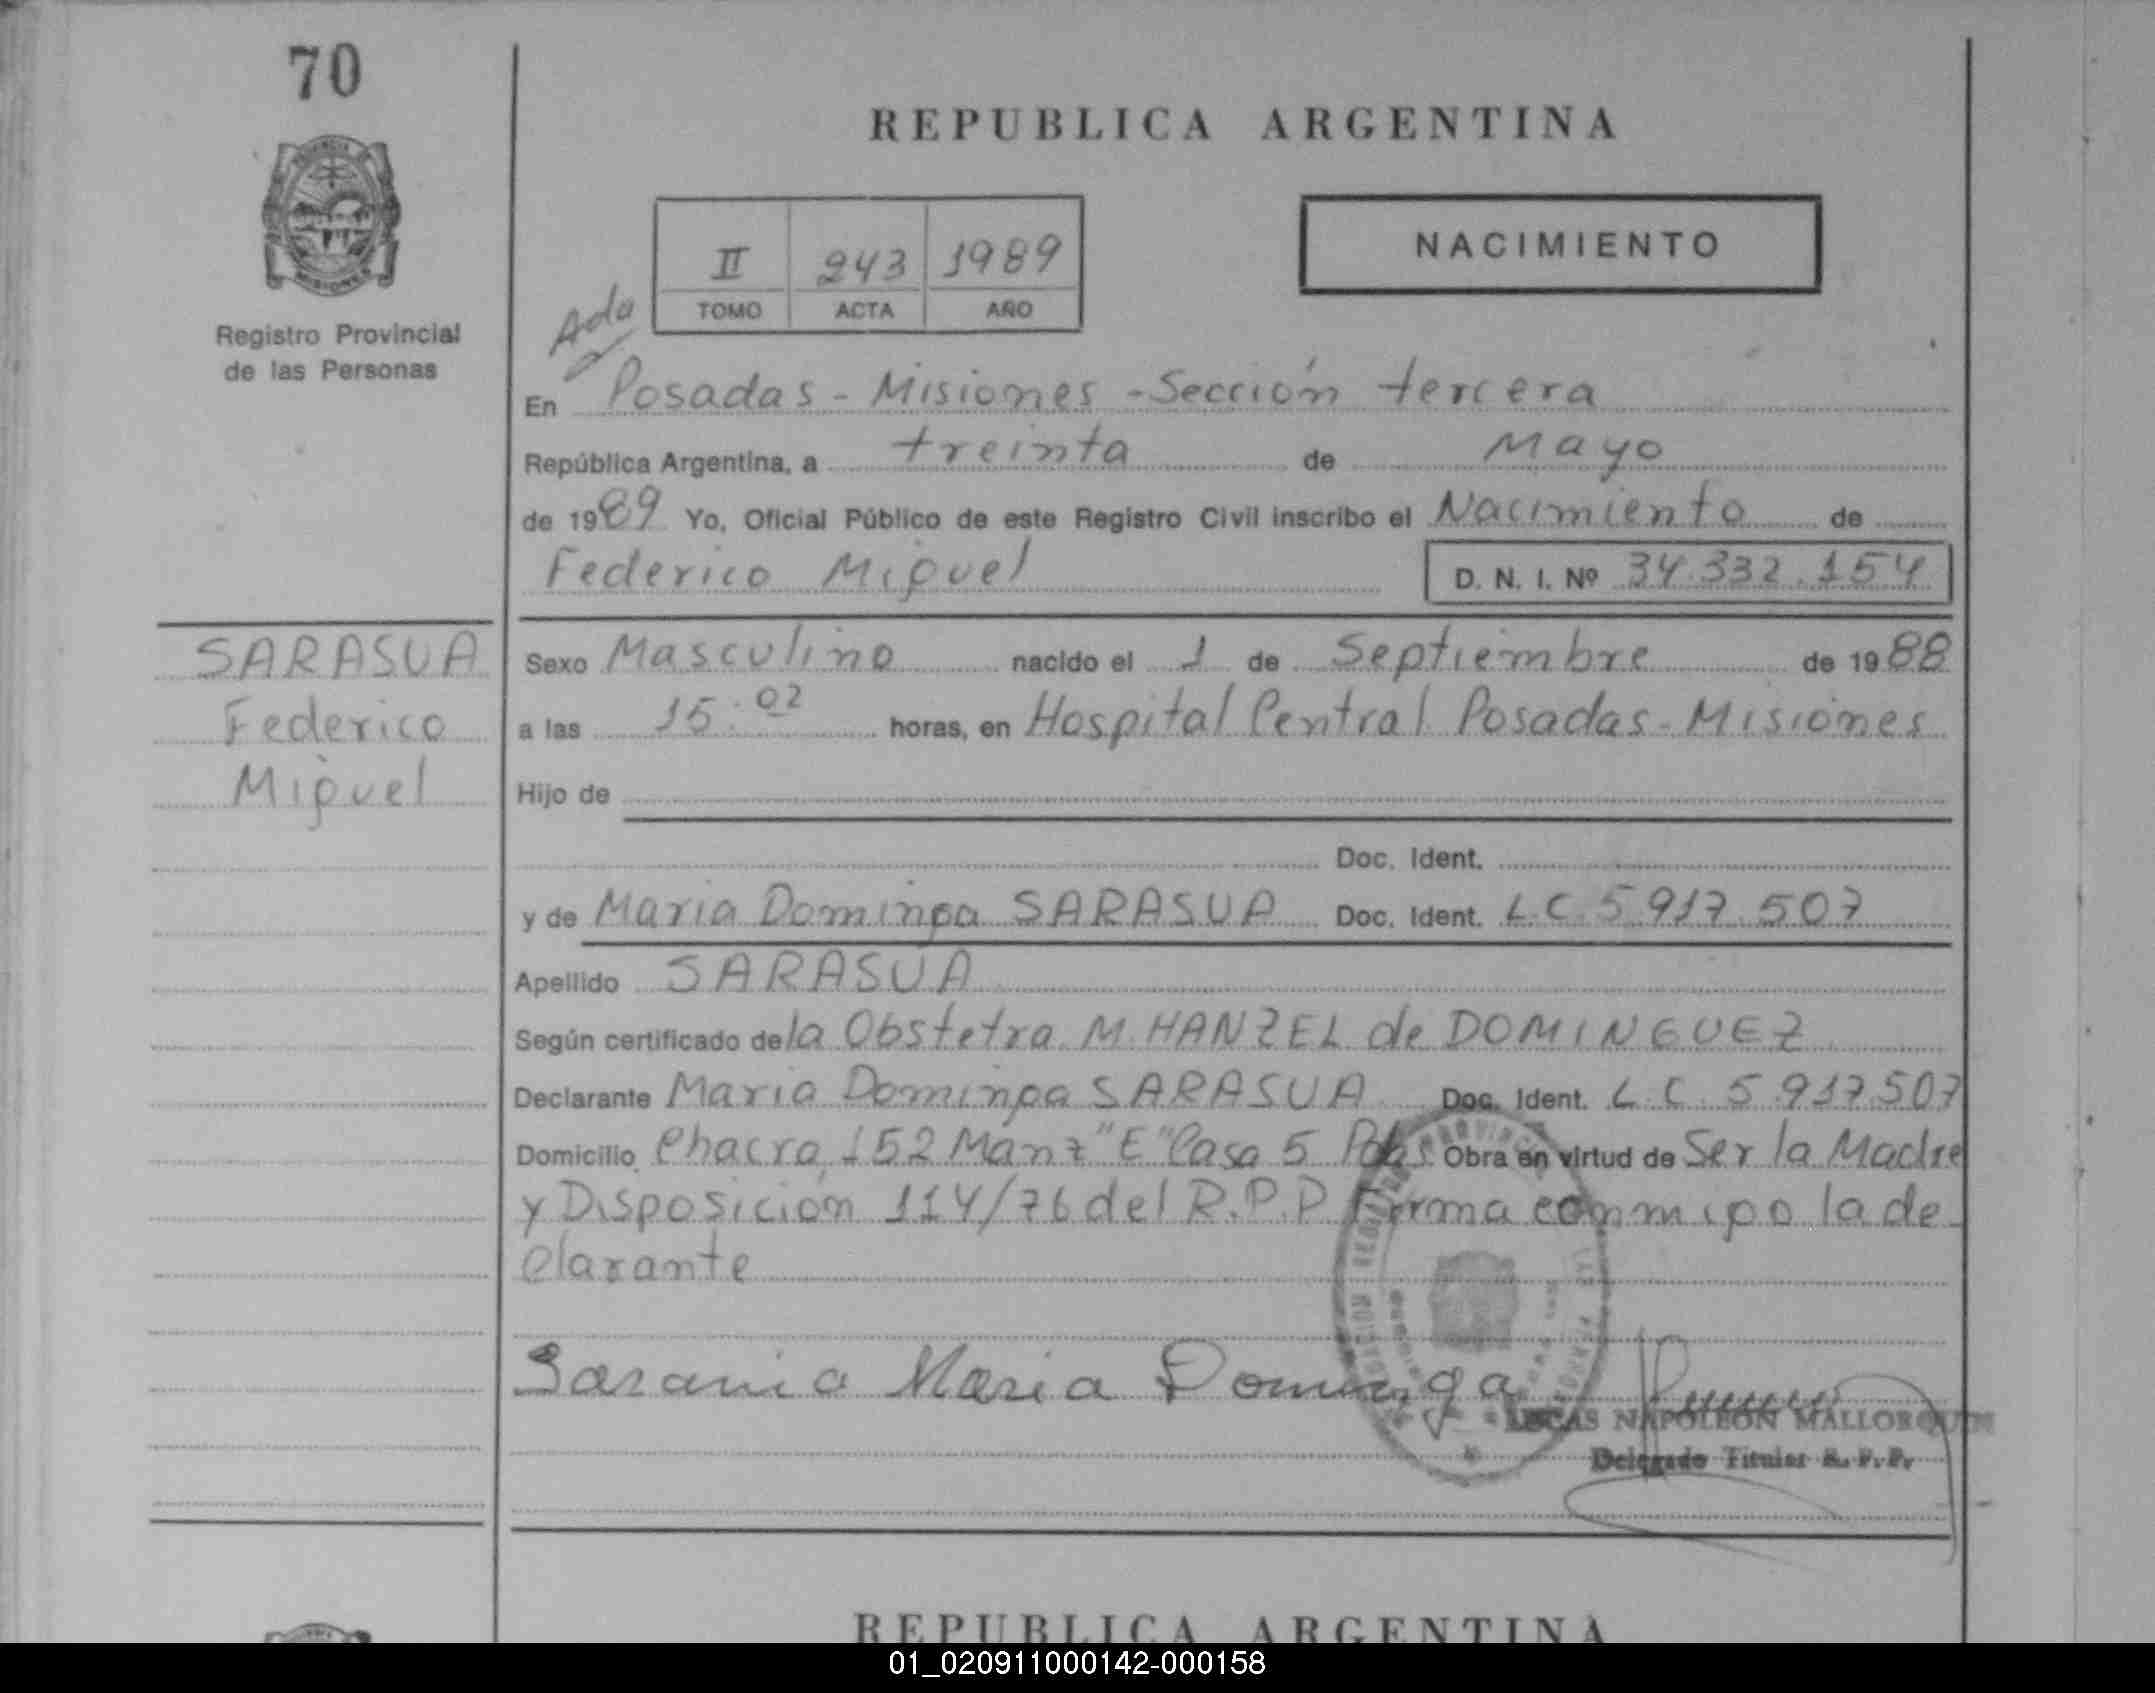 70
REPUBLICA ARGENTINA
NACIMIENTO
II 243 1989
TOMO ACTA AÑO
Registro Provincial
de las Personas
En Posadas - Misiones - Sección tercera
República Argentina, a treinta de Mayo
de 1989 Yo, Oficial Público de este Registro Civil inscribo el Nacimiento de
Federico Miguel D. N. I. Nº 34.332.154
SARASUA
Federico
Miguel
Sexo Masculino nacido el 1 de Septiembre de 1988
a las 15:02 horas, en Hospital Central Posadas - Misiones
Hijo de
Doc. Ident.
y de Maria Dominga SARASUA Doc. Ident. L.C. 5.917.507
Apellido SARASUA
Según certificado de la Obstetra M. HANZEL de DOMINGUEZ
Declarante Maria Dominga SARASUA Doc. Ident. L.C. 5.917.507
Domicilio Chacra 152 Manz "E" Casa 5 Pdas Obra en virtud de Ser la Madre
y Disposición 114/76 del R.P.P Firma conmigo la de
clarante
Sarasua Maria Dominga
LUCAS NAPOLEON MALLORQUIN
Delegado Titular R. P. P.
REPUBLICA ARGENTINA
01_020911000142-000158